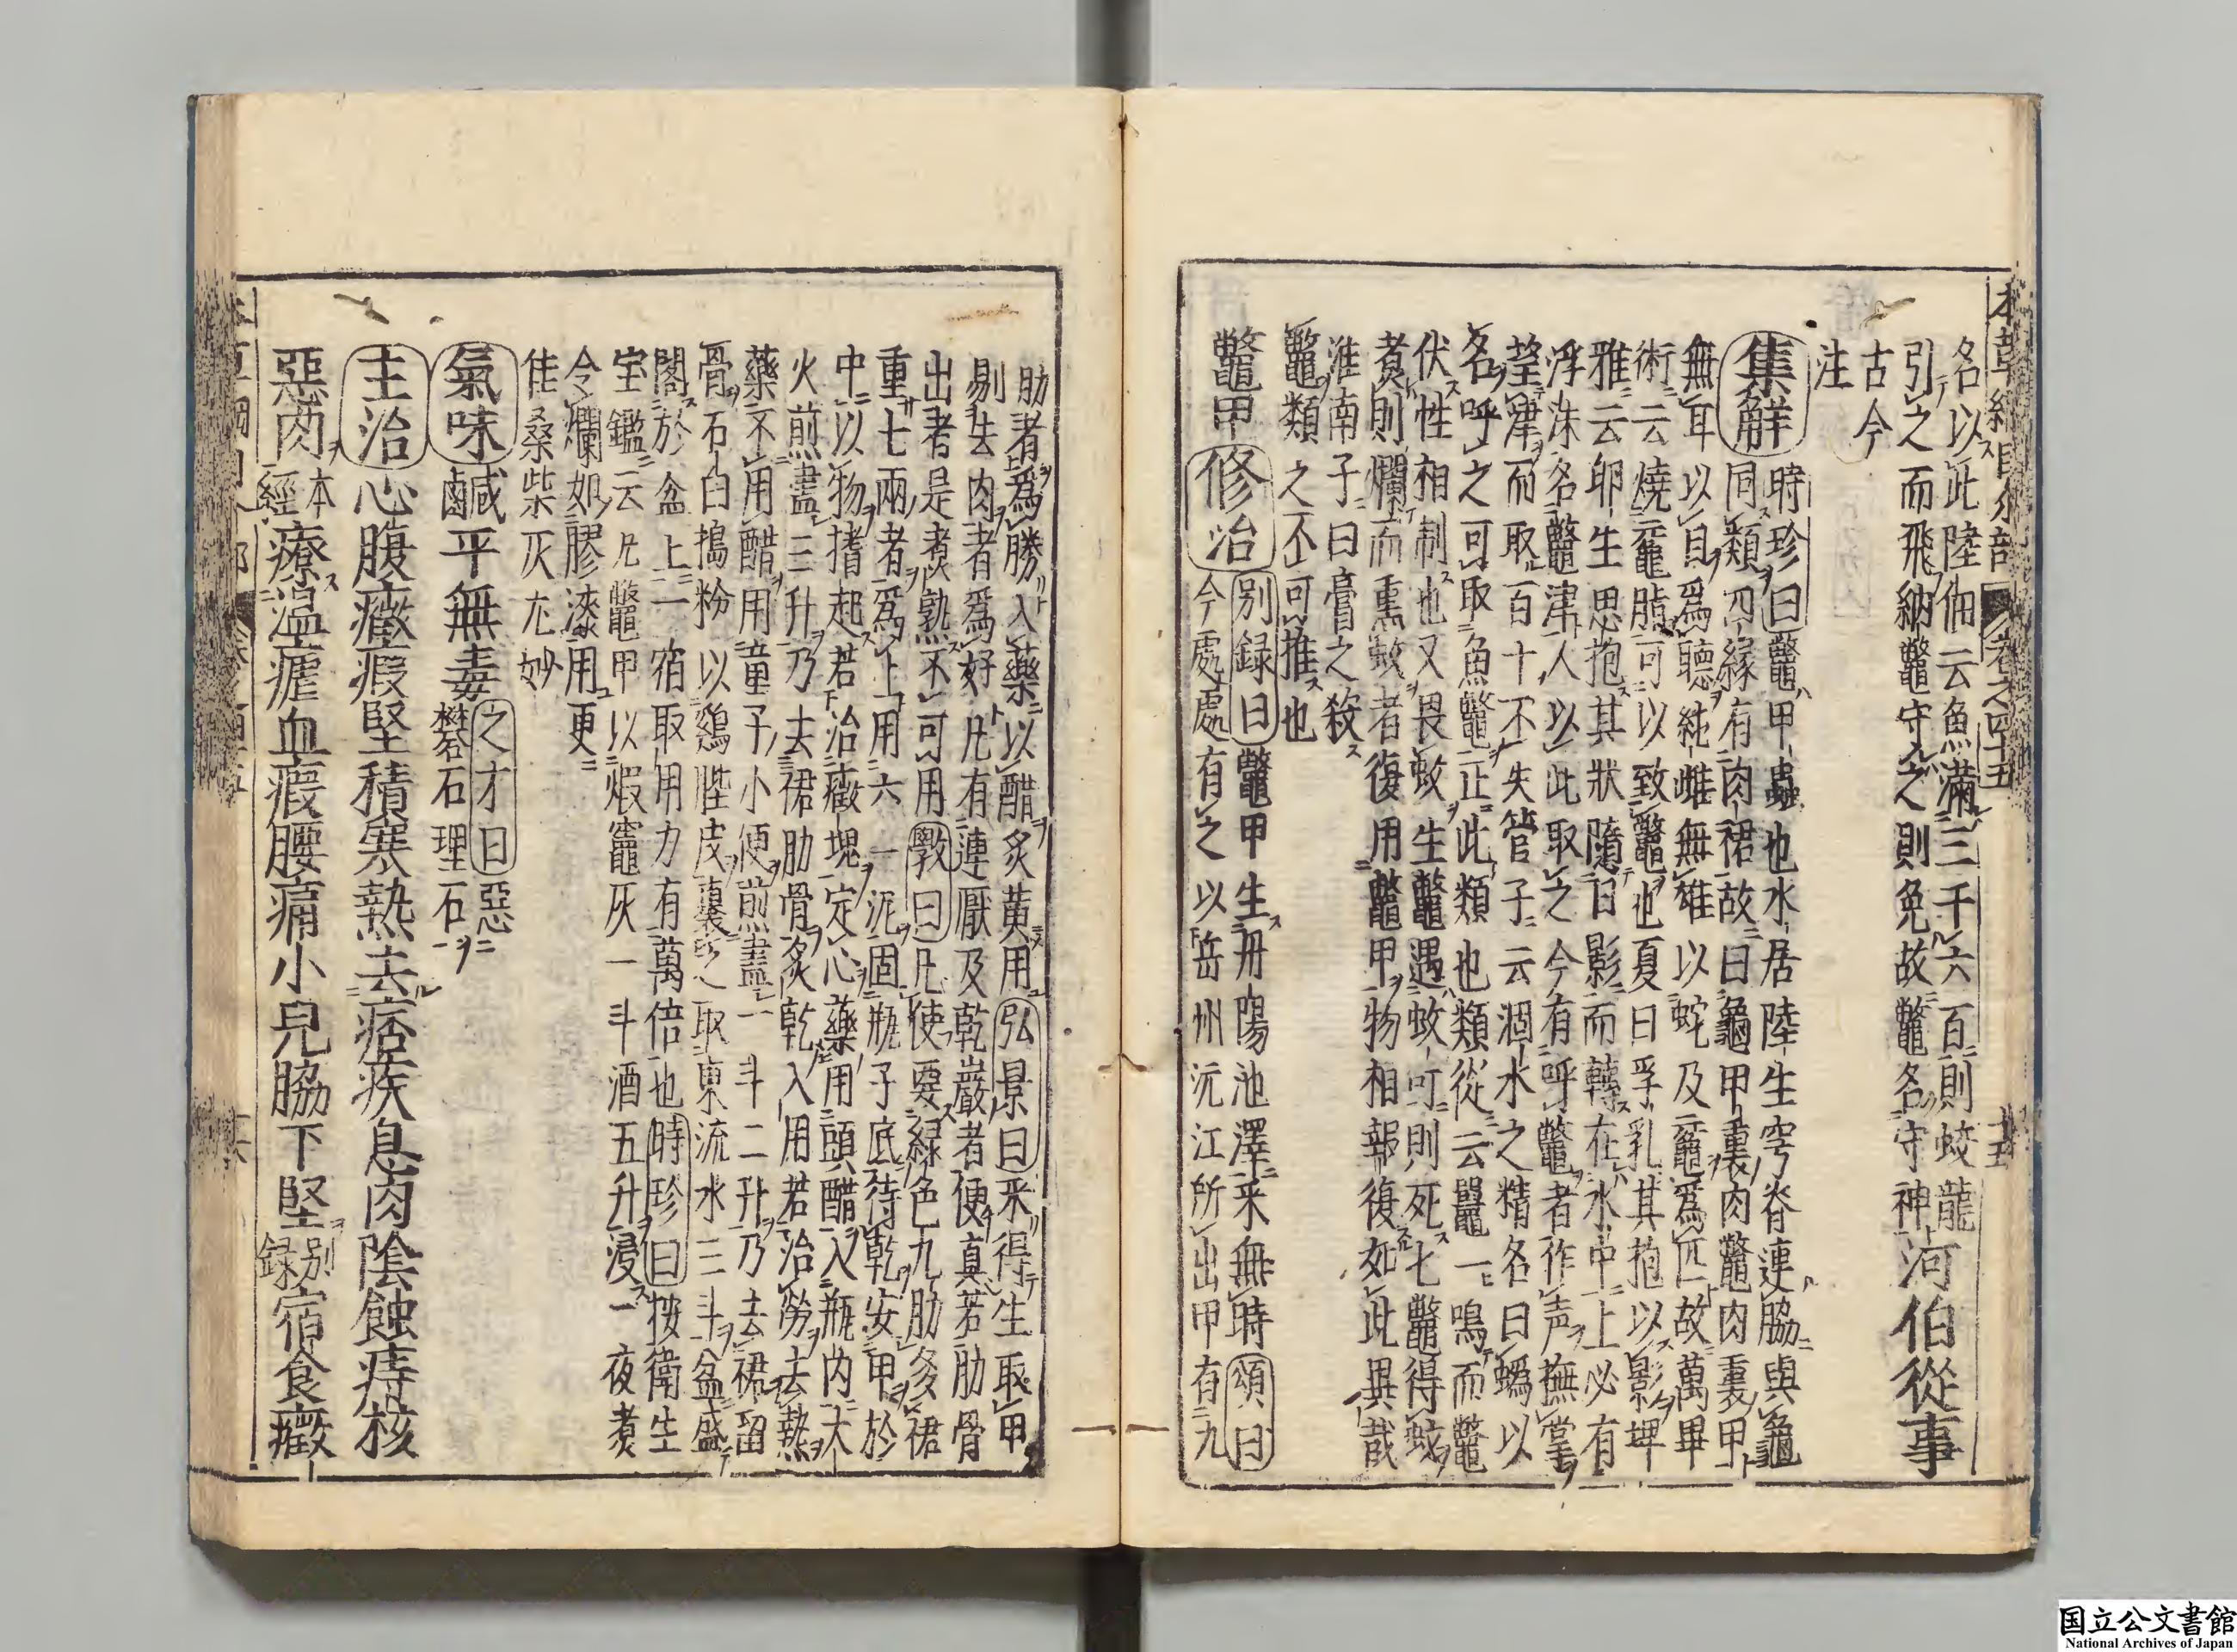 本草綱目介部 卷之四十五 十五
名以此陸佃云魚滿三千六百則蛟龍
引之而飛納鼈守之則免故鼈名守神河伯從事
古今
注
集解時珍曰鼈甲蟲也水居陸生穹脊連脇與龜
同類四縁有肉裙故曰龜甲裏肉鼈肉裏甲
無耳以目爲聽純雌無雄以蛇及黿爲匹故萬畢
術云燒黿脂可以致鼈也夏曰孚乳其抱以影埤
雅云卵生思抱其狀隨日影而轉在水中上必有
浮沫名鼈津人以此取之今有呼鼈者作声撫掌
望津而取百十不失管子云涸水之精名曰蟡以
名呼之可取魚鼈正此類也類從云鼉一鳴而鼈
伏性相制也又畏蚊生鼈遇蚊叮則死死鼈得蚊
煮則爛而熏蚊者復用鼈甲物相報復如此異哉
淮南子曰膏之殺
鼈類之不可推也
鼈甲修治別録曰鼈甲生丹陽池澤采無時頌曰
今處處有之以岳州沅江所出甲有九
肋者爲勝入藥以醋炙黄用弘景曰采得生取甲
剔去肉者爲好凡有連厭及乾巖者便真若肋骨
出者是煮熟不可用斅曰凡使要緑色九肋多裙
重七兩者爲上用六一泥固瓶子底待乾安甲於
中以物搘起若治癥塊定心藥用頭醋入瓶内大
火煎盡三升乃去裙肋骨炙乾入用若治勞去熱
藥不用醋用童子小便煎盡一斗二升乃去裙留
骨石臼搗粉以鷄䏶皮裹之取東流水三斗盆盛
閣於盆上一宿取用力有萬倍也時珍曰按衛生
宝鑑云凡鼈甲以煆竈灰一斗酒五升浸一夜煮
令爛如膠漆用更
佳桑柴灰尤妙
氣味鹹平無毒之才曰惡
礬石理石
主治心腹癥瘕堅積寒熱去痞疾息肉陰蝕痔核
惡肉本經療溫瘧血瘕腰痛小兒脇下堅別録宿食癥
国立公文書館
National Archives of Japan